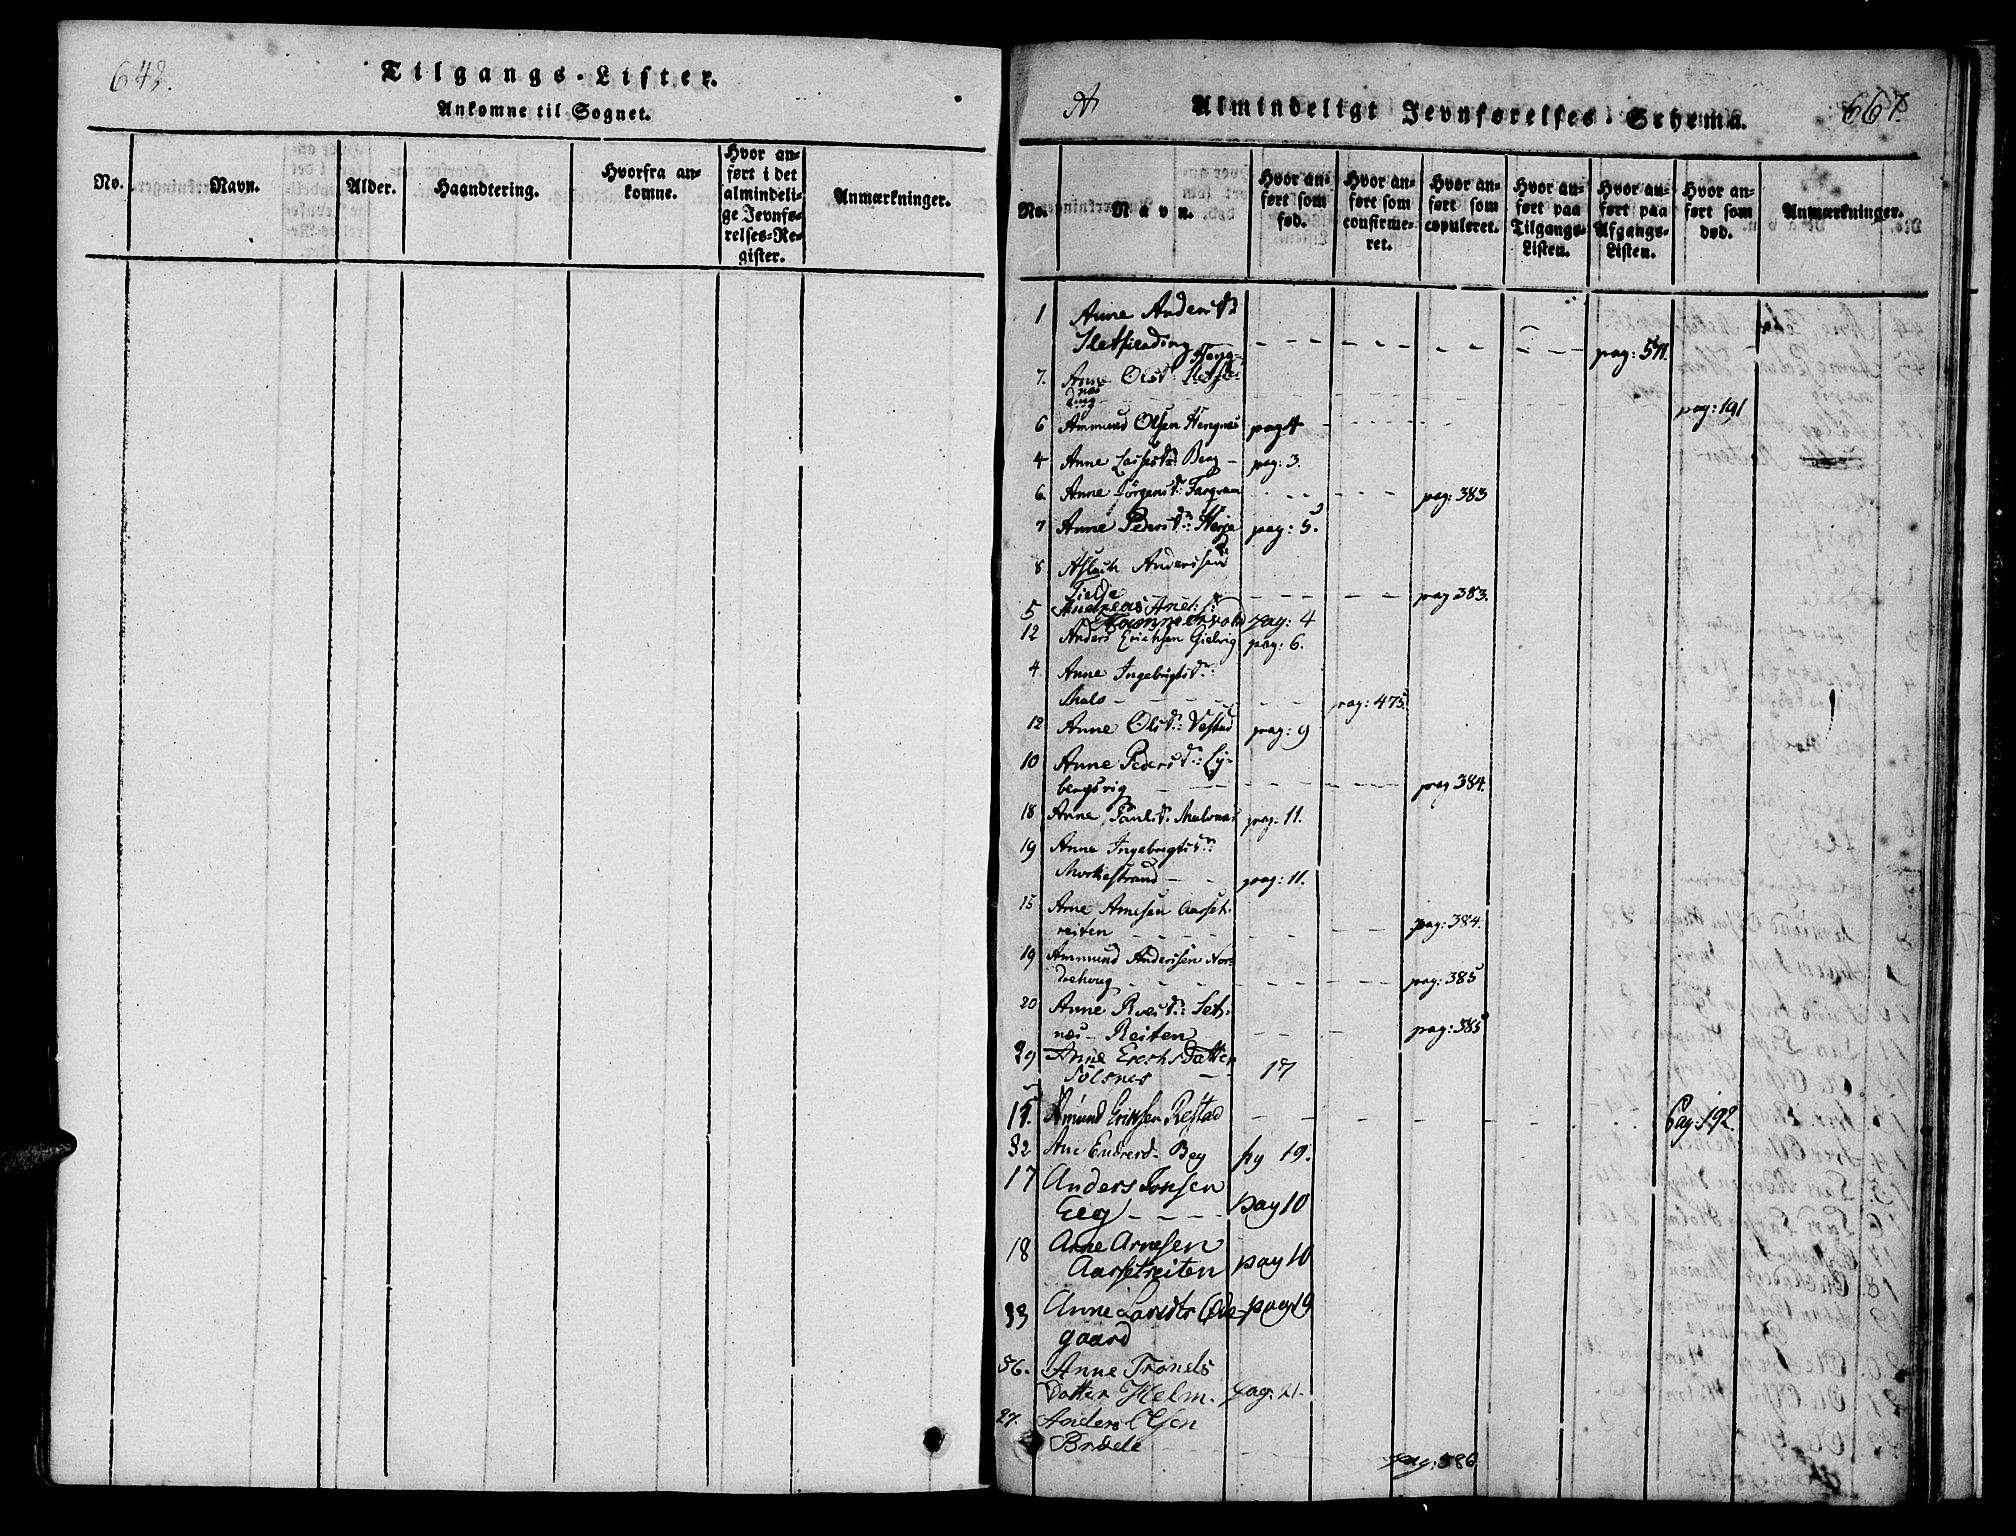 642.
Tilgangs-Lister.
Ankomne til Sognet.
No.
Navn.
Alder.
Haandtering.
Hvorfra an-
komne.
Hvor an-
ført i det
almindeli-
ge Jevnfø-
relses-Re-
gister.
Anmærkninger.
A
Almindeligt Jevnførelses-Schema.
667.
No.
Navn.
Hvor an-
ført som
fød.
Hvor an-
ført som
confirme-
ret.
Hvor an-
ført som
copuleret.
Hvor an-
ført paa
Tilgangs-
Listen.
Hvor an-
ført paa
Afgangs-
Listen.
Hvor an-
ført som
død.
Anmærkninger.
1 Anne Andersd:
pag: 511.
7. Anne Olsd:
pag: 191
6 Ammund Olsen Hengnæs pag 4
4 Anne Lassesd: Berg - pag: 3.
6. Anne Jørgensd: pag: 383
7 Anne Pedersd: Herje pag: 5.
8 Aslach Anderssen
Tielde pag 383.
5 Andreas And:
pag: 4
12 Anders Erichsen Gielvig pag: 6.
4 Anne Ingebrigtsd:
Malo pag: 475.
12 Anne Olsd: Vestad pag: 9
10 Anne Pedersd: Ly-
bergsvig pag 384.
18 Anne Paulsd: Malonæs pag: 11.
19 Anne Ingebrigtsd:
Morkestrand pag: 11.
15 Arne Arnesen Aarset-
reiten pag: 384.
19 Ammund Anderssen Nor-
drehoug pag: 385
20 Anne Roesd: Set-
næs - Reiten pag: 385
29 Anne Erichs Datter
Sølsnes 17
15. Amund Erikssen Restad Pag. 192.
32 Ane Endresd. Beg pg 19.
17 Anders Jonsen
Eeg pag 10
18 Arne Arnesen
Aarsetreiten pag 10
33 Anne Larsdtr Øde- pag 19
gaard
36. Anne Tronds
Datter Helm. pag: 21-
27. Anders Olsen
Brædele pag: 386